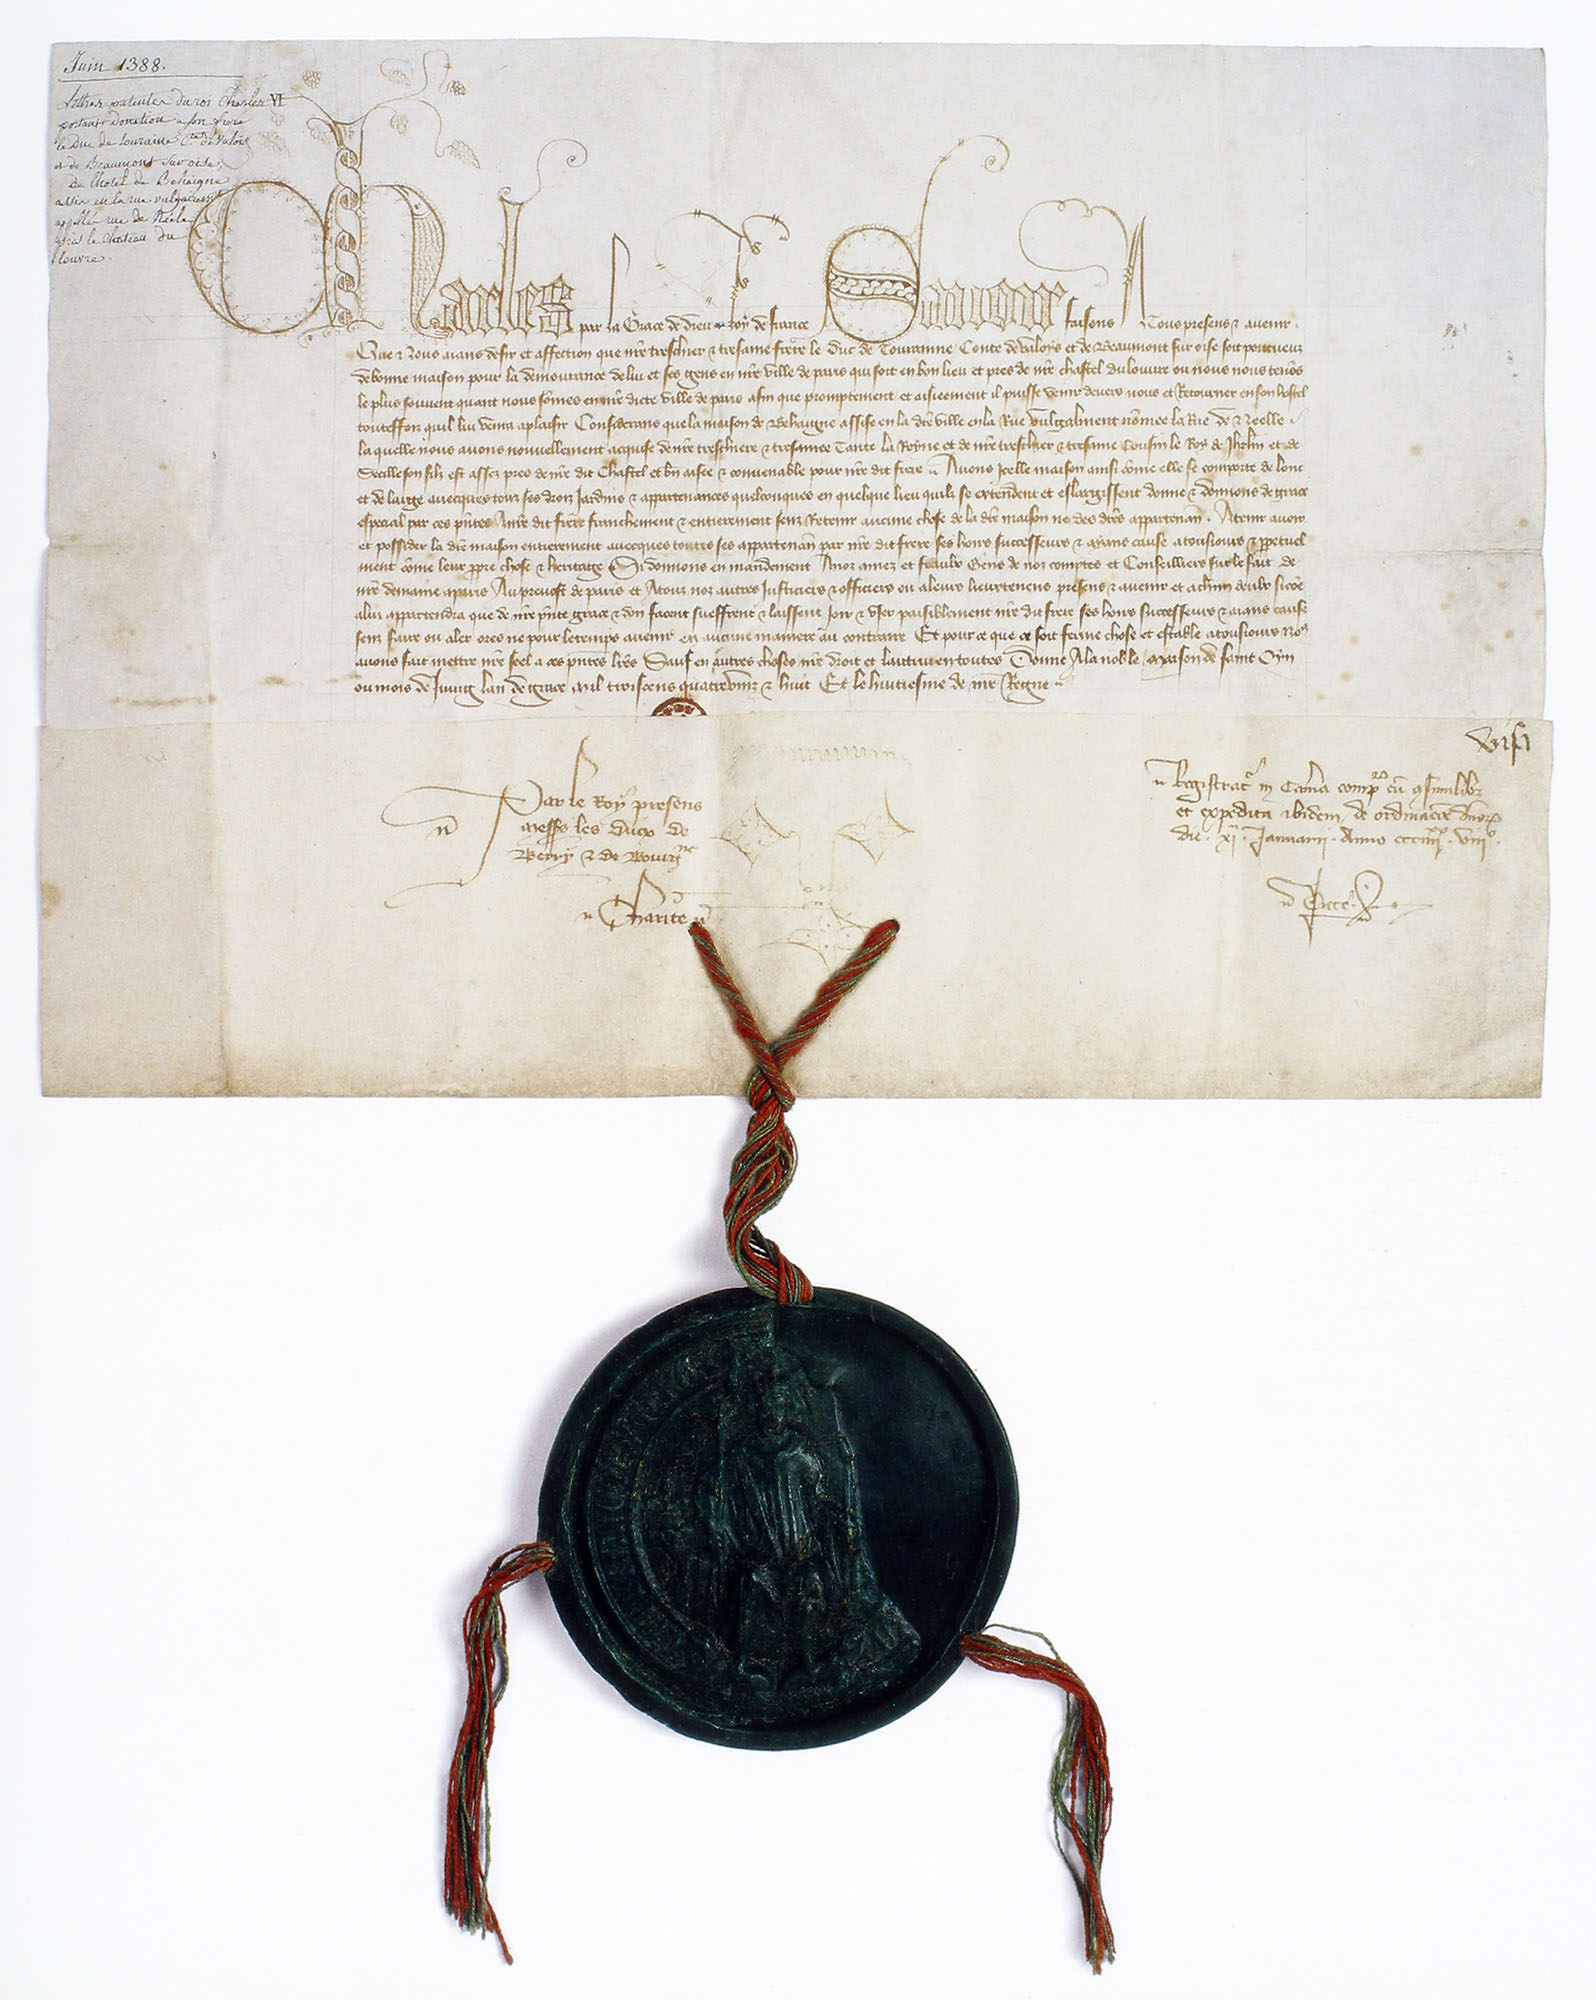 Juin 1388.
Lettres patentes du roi Charles VI
portant donation a son frere
le Duc de Touraine Cte. de Valois
et de Beaumont sur oise,
De l'hotel de Behaigne
assis en la rue vulgairement
appellée rue de Neele
près le chateau du
Louvre.
Charles par la Grace de dieu Roy de france Savoir faisons A Tous presens & avenir.
Que Nous aians desir et affection que nre treschier & tresame frere le Duc de Touraine Conte de Valoys et de Beaumont sur oise soit pourveuz
de bonne maison pour la demourance de lui et ses gens en nre ville de paris qui soit en bon lieu et pres de nre chastel du louvre ou nous nous tenons
le plus souvent quant nous sommes en nre dicte ville de paris afin que promptement et aisieement il puisse venir devers nous et Retourner en son hostel
toutesfoiz quil lui venra a plaisir Considerans que la maison de Behaigne assise en la dce ville en la Rue vulgalment nomee la Rue de Neelle
la quelle nous avons nouvellement acquise de nre treschiere & tresamee Tante la Royne et de nre treschier & tresame Cousin le Roy de Jhrlm et de
Secille son filz est assez pres de nre dit Chastel et bn aisee & convenable pour nre dit frere Avons Icelle maison ainsi come elle se comporte de lonc
et de large avecques touz ses droiz Jardins & appartenances quelconques en quelque lieu quilz se extendent et eslargissent donne & donnons de grace
especial par ces pntes A nre dit frere franchement & entierement senz Retenir aucune chose de la dce maison ne des dces appartenan. A tenir avoir
et possider la dce maison entierement avecques toutes ses appartenan par nre dit frere ses hoirs successeurs & aians cause a tousiours & ppetuel
ment come leur ppre chose & heritage Si donnons en mandement A noz amez et feaulx Gens de noz comptes et Conseilliers sur le fait de
nre demaine a paris Au prevost de paris et A touz noz autres Justiciers & officiers ou a leurs lieutenens presens & avenir et a chun deulx sicoe
a lui appartendra que de nre pnte grace & don facent sueffrent & laissent Joir & User paisiblement nre dit frere ses hoirs successeurs & aians cause
senz faire ou aler ores ne pour le temps avenir en aucune maniere au contraire Et pour ce que ce soit ferme chose et estable a tousiours Nos
avons fait mettre nre seel a ces pntes lres Sauf en autres choses nre droit et lautrui en toutes Donne A la noble Maison de saint Oyn
ou mois de Juing lan de grace mil troiscens quatrevinz & huit Et le huitiesme de nre Regne
visa
Par le Roy presens
messrs les ducx de
Berry & de Bourgne
Charite
Registrata in Camera comp
et expedita ibidem de ordinacione dnorum
die xi Januarii Anno